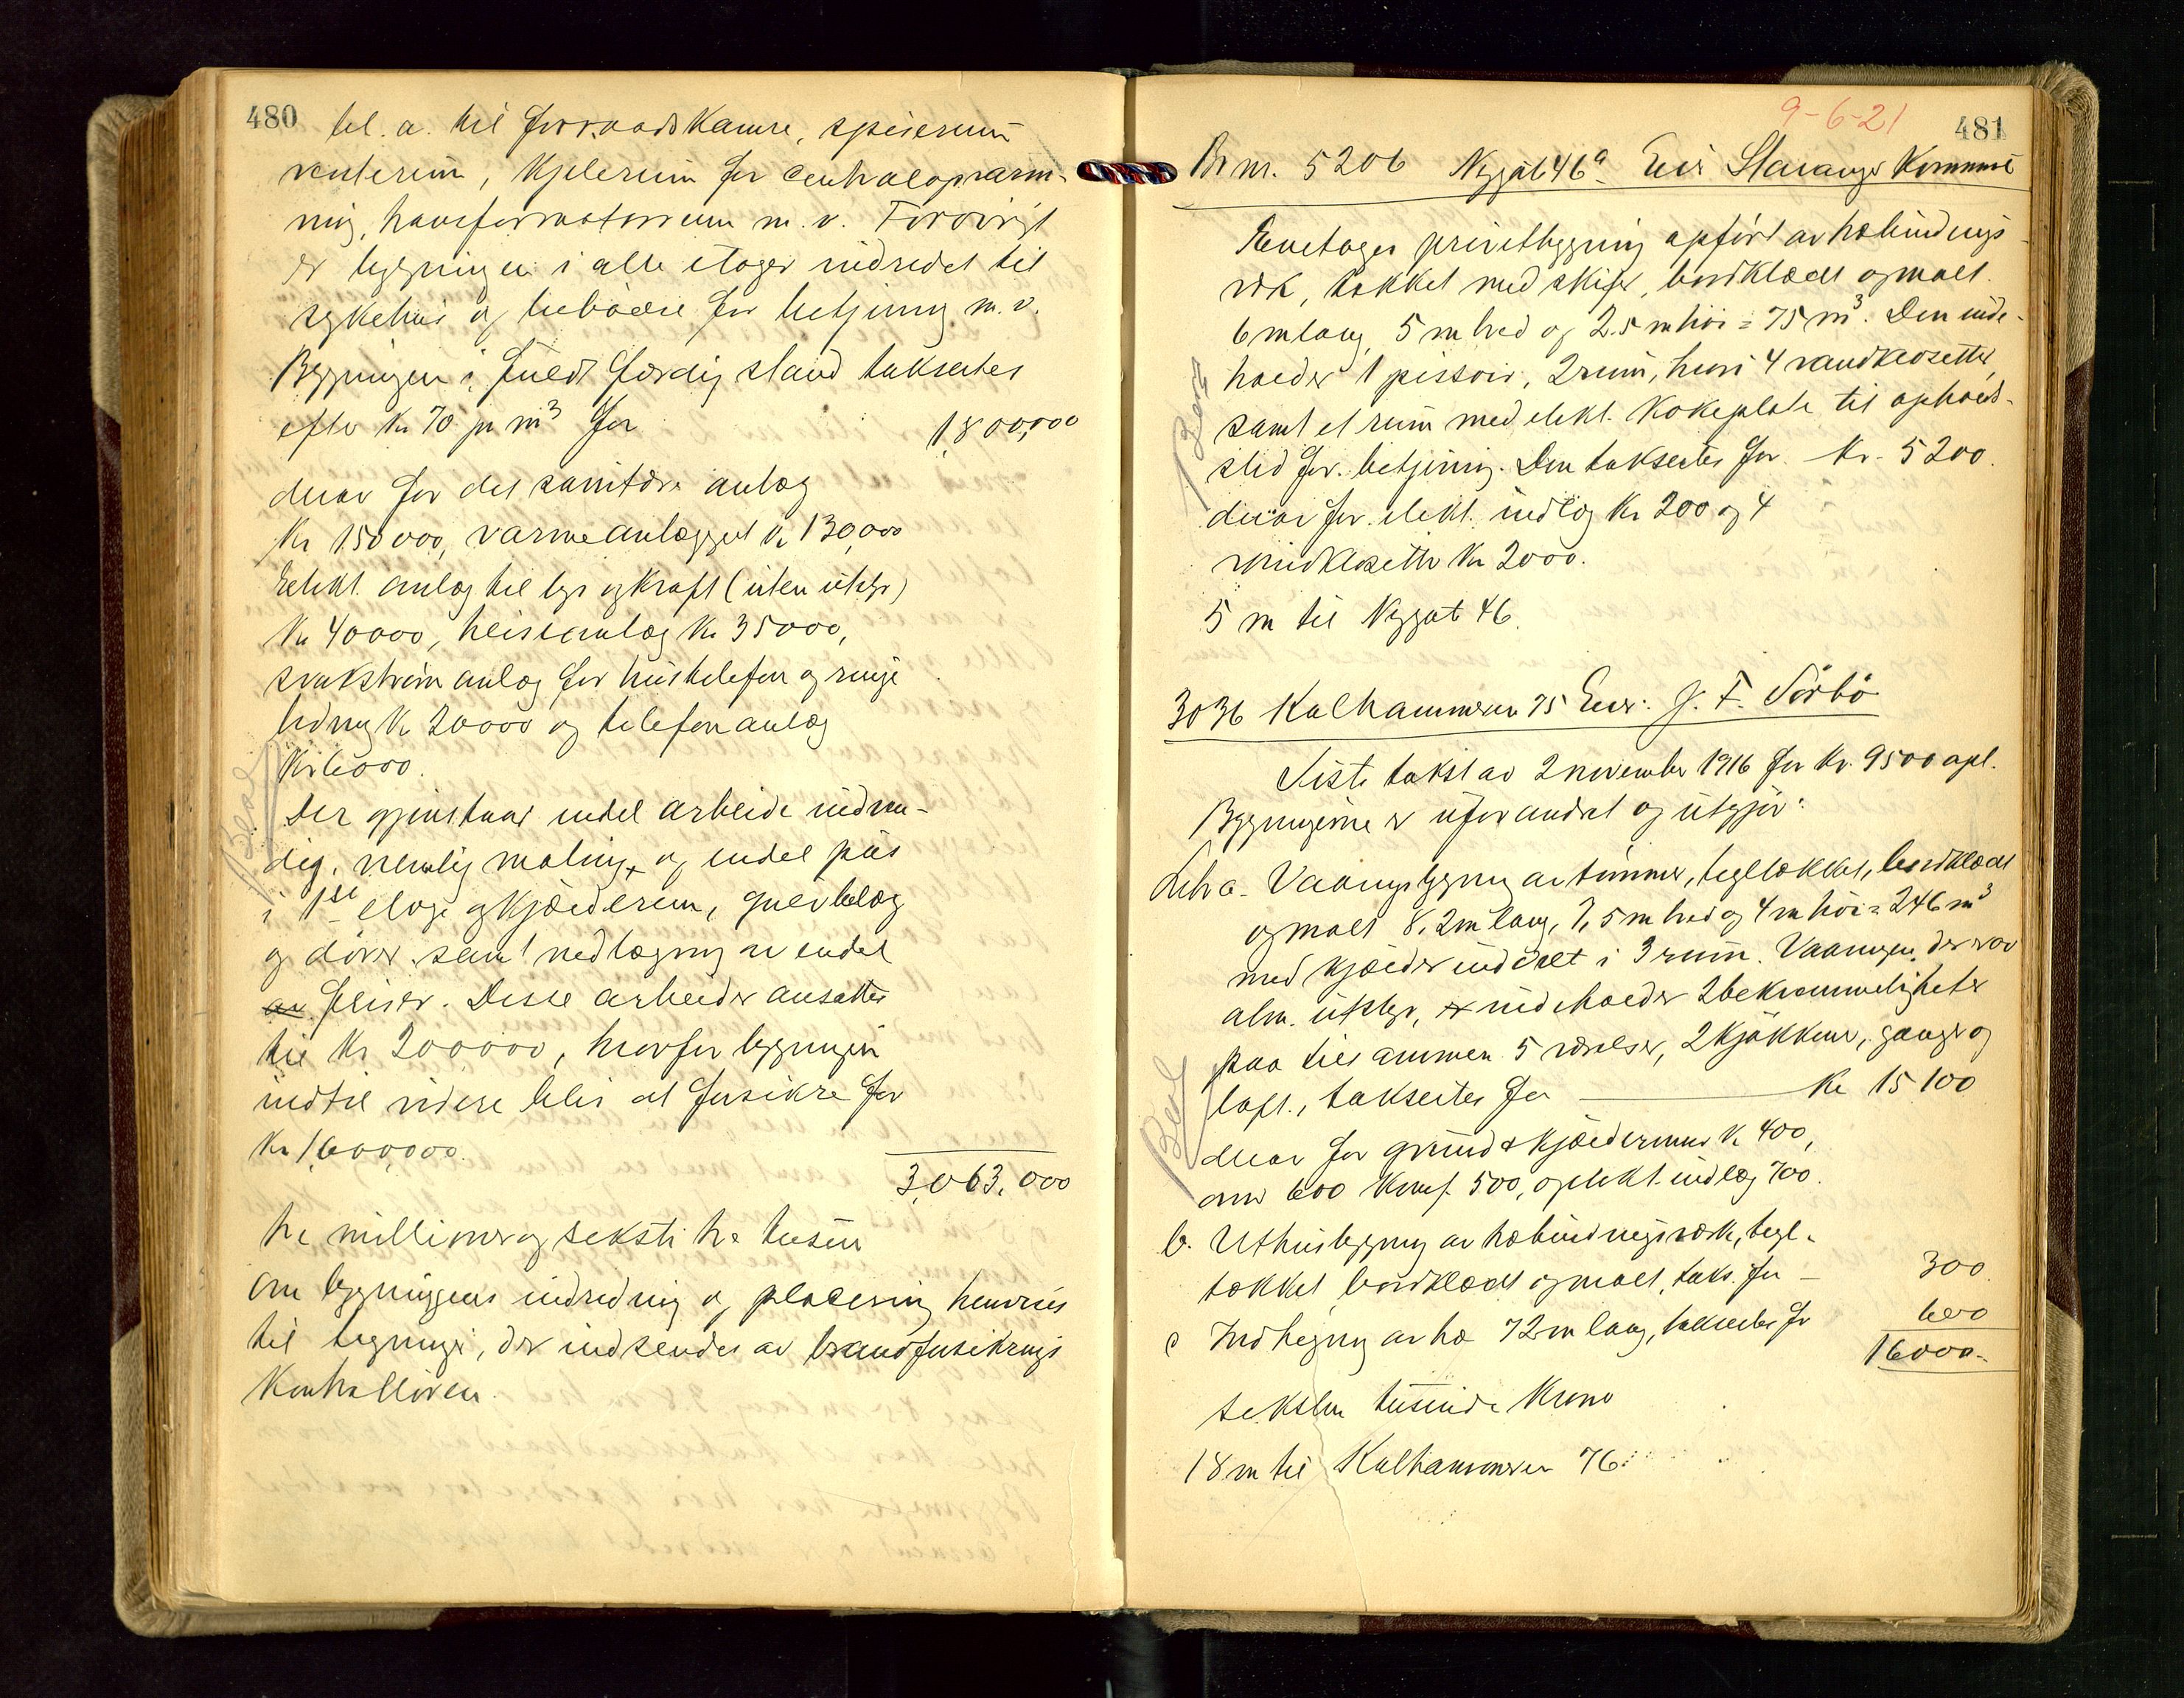 480
bl. a. til forraadskamre, spiserum
venterum, kjelerum for centralopvarm-
ning, transformatorrum m. v. Forövrigt
er bygningen i alle etager indredet til
sykehus og beboelse for betjening m. v.
Bygningen i fuldt færdig stand takseres
efter Kr 70 pr m³ for 1,800,000
derav for det sanitære anlæg
Kr 150000, varmeanlægget Kr 130,000
Elekt. anlæg til lys og kraft (uten utstyr)
Kr 40000, heiseanlæg Kr 35000,
svakströmanlæg for hustelefon og ringe
ledning Kr 20000 og telefonanlæg
Kr 6000.
Der gjenstaar endel arbeide indven-
dig, nemlig maling, og endel pus
i 1ste etage og kjælderrum, gulvbelæg
og dörer samt nedlægning av endel
av fliser. Disse arbeider ansættes
til Kr 200000, hvorfor bygningen
indtil videre blir at forsikre for
Kr 1,600,000.
3,063,000
tre millioner og seksti tre tusen
Om bygningens indredning og placering henvises
til tegninger, der indsendes av brandforsikrings
Kontrolløren.
9-6-21
481
Br nr. 5206 Nygat 46a Eier Stavanger Kommune
Enetages privetbygning opført av træbindings
verk, tækket med skifer, bordklædt og malt.
6 m lang, 5 m bred og 2.5 m høi = 75 m³. Den inde-
holder 1 pissoir, 2 rum, hvori 4 vandklosetter,
samt et rum med elekt. kokeplate til opholds-
sted for betjening. Den takseres for Kr. 5200.
derav for elekt. indlæg Kr 200 og 4
vandklosetter Kr 2000.
5 m til Nygat 46.
3036 Kalhammeren 75 Eier: J. F. Sörbö
Siste takst av 2 november 1916 for Kr. 9500 opl.
Bygningerne er uforandret og utgjör:
Litr a. Vaaningsbygning av tømmer, tegltækket, bordklædt
og malt 8,2 m lang, 7,5 m bred og 4 m höi = 246 m³
med kjælder inddelt i 3 rum. Vaaningen, der har
alm. utstyr, indeholder 2 bekvemmeligheter
paa tilsammen 5 værelser, 2 kjøkkener, ganger og
loft, takseres for Kr 15100
derav for grund & kjældermur Kr 400,
ovne 600 komf. 500, og elekt. indlæg 700.
b. Uthusbygning av træbindingsverk, tegl-
tækket, bordklædt og malt, taks. for 300
c Indhegning av træ 72 m lang, takseres for 600
16000.
seksten tusinde Kroner
18 m til Kalhammeren 76.